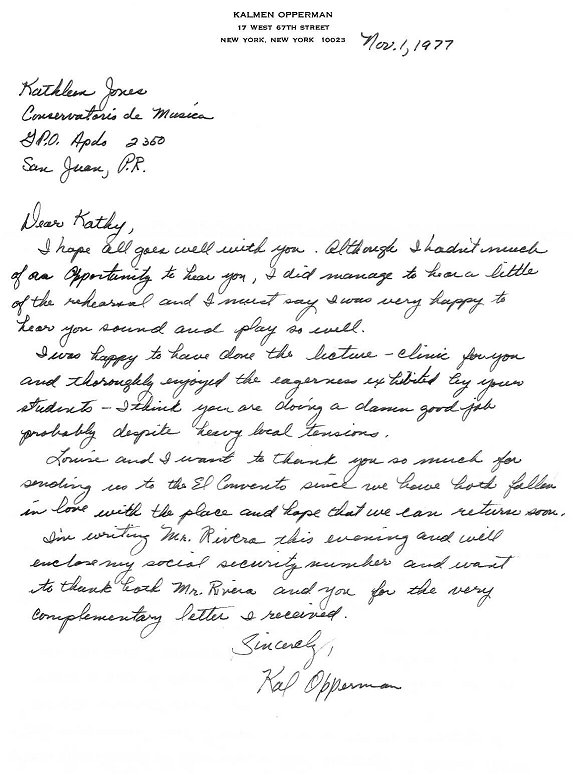 KALMEN OPPERMAN
17 WEST 67TH STREET
NEW YORK, NEW YORK 10023
Nov. 1, 1977
Kathleen Jones
Conservatorio de Musica
G.P.O. Apdo 2350
San Juan, P.R.
Dear Kathy,
I hope all goes well with you. Although I hadn't much
of an Opportunity to hear you, I did manage to hear a little
of the rehearsal and I must say I was very happy to
hear you sound and play so well.
I was happy to have done the lecture-clinic for you
and thoroughly enjoyed the eagerness exhibited by your
students - I think you are doing a damn good job
probably despite heavy local tensions.
Louise and I want to thank you so much for
sending us to the El Convento since we have both fallen
in love with the place and hope that we can return soon.
I'm writing Mr. Rivera this evening and will
enclose my social security number and want
to thank both Mr. Rivera and you for the very
complementary letter I received.
Sincerely,
Kal Opperman